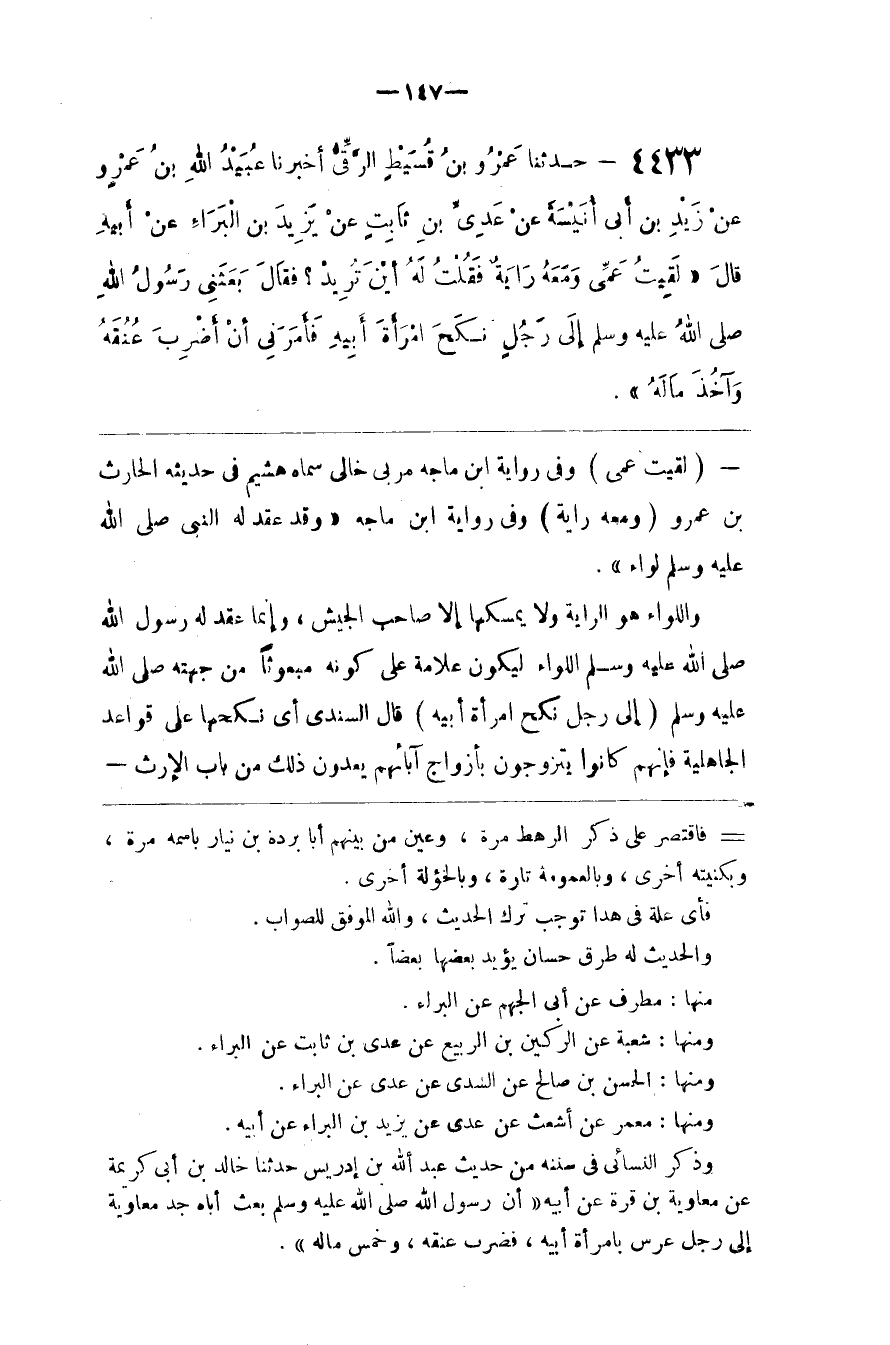 —١٤٧—
٤٤٣٣ — حـدثنا عَمْرُو بنُ قُسَيْطٍ الرَّقِّىُّ أخبرنا عُبَيْدُ اللهِ بنُ عَمْرٍو
عنْ زَيْدِ بن أَبى أُنَيْسَةَ عنْ عَدِىِّ بنِ ثَابِتٍ عنْ يَزِيدَ بن الْبَرَاءِ عنْ أَبِيهِ
قالَ « لَقِيتُ عَمِّى وَمَعَهُ رَايَةٌ فَقُلْتُ لَهُ أَيْنَ تُرِيدُ ؟ فقَالَ بَعَثَنِى رَسُولُ اللهِ
صلى اللهُ عليه وسلم إلَى رَجُلٍ نـكَحَ امْرَأَةَ أَبِيهِ فَأَمَرَنِي أَنْ أَضْرِبَ عُنُقَهُ
وَآخُذَ مَالَهُ » .
— ( لقيت عمى ) وفى رواية ابن ماجه مر بى خالى سماه هشيم فى حديثه الحارث
بن عمرو ( ومعه راية ) وفى رواية ابن ماجه « وقد عقد له النبى صلى الله
عليه وسلم لواء » .
واللواء هو الراية ولا يمسكها إلا صاحب الجيش ، وإنما عقد له رسول الله
صلى الله عليه وسـلم اللواء ليكون علامة على كونه مبعوثاً من جهته صلى الله
عليه وسلم ( إلى رجل نكح امرأة أبيه ) قال السندى أى نـكحها على قواعد
الجاهلية فإنهم كانوا يتزوجون بأزواج آبائهم يعدون ذلك من باب الإرث —
= فاقتصر على ذكر الرهط مرة ، وعين من بينهم أبا بردة بن نيار باسمه مرة ،
وبكنيته أخرى ، وبالعمومة تارة ، وبالخؤلة أخرى .
فأى علة فى هدا توجب ترك الحديث ، والله الموفق للصواب .
والحديث له طرق حسان يؤيد بعضها بعضاً .
منها : مطرف عن أبى الجهم عن البراء .
ومنها : شعبة عن الركين بن الربيع عن عدى بن ثابت عن البراء .
ومنها : الحسن بن صالح عن السدى عن عدى عن البراء .
ومنها : معمر عن أشعث عن عدى عن يزيد بن البراء عن أبيه .
وذكر النسائى فى سننه من حديث عبد الله بن إدريس حدثنا خالد بن أبى كريمة
عن معاوية بن قرة عن أبيه « أن رسول الله صلى الله عليه وسلم بعث أباه جد معاوية
إلى رجل عرس بامرأة أبيه ، فضرب عنقه ، وخمس ماله » .